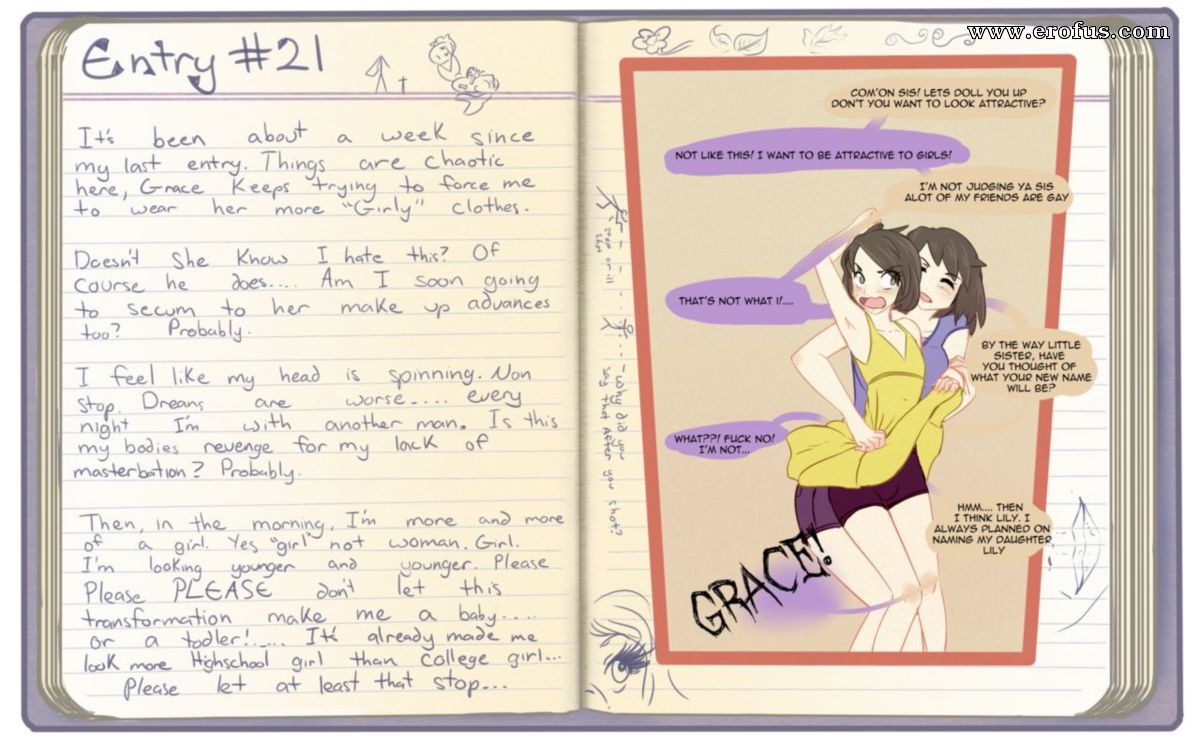 Entry #21
It's been about a week since
my last entry. Things are chaotic
here, Grace Keeps trying to force me
to wear her more "Girly" clothes.
Doesn't She Know I hate this? Of
course he does.... Am I soon going
to secum to her make up advances
too? Probably.
I feel like my head is spinning. Non
stop. Dreans are worse..... every
night I'm with another man. Is this
my bodies revenge for my lack of
masterbation? Probably.
Then, in the morning, I'm more and more
of a girl. Yes "girl" not woman. Girl.
I'm looking younger and younger. Please
Please PLEASE don't let this
transformation make me a baby....
or a todler!..... It's already made me
look more Highschool girl than college girl...
Please let at least that stop...
www.erofus.com
COM'ON SIS! LETS DOLL YOU UP
DON'T YOU WANT TO LOOK ATTRACTIVE?
NOT LIKE THIS! I WANT TO BE ATTRACTIVE TO GIRLS!
I'M NOT JUDGING YA SIS
ALOT OF MY FRIENDS ARE GAY
THAT'S NOT WHAT I!....
BY THE WAY LITTLE
SISTER, HAVE
YOU THOUGHT OF
WHAT YOUR NEW NAME
WILL BE?
WHAT??! FUCK NO!
I'M NOT...
HMM.... THEN
I THINK LILY. I
ALWAYS PLANNED ON
NAMING MY DAUGHTER
LILY
GRACE!
stop or ill
shot
why did you
say that After you shot?